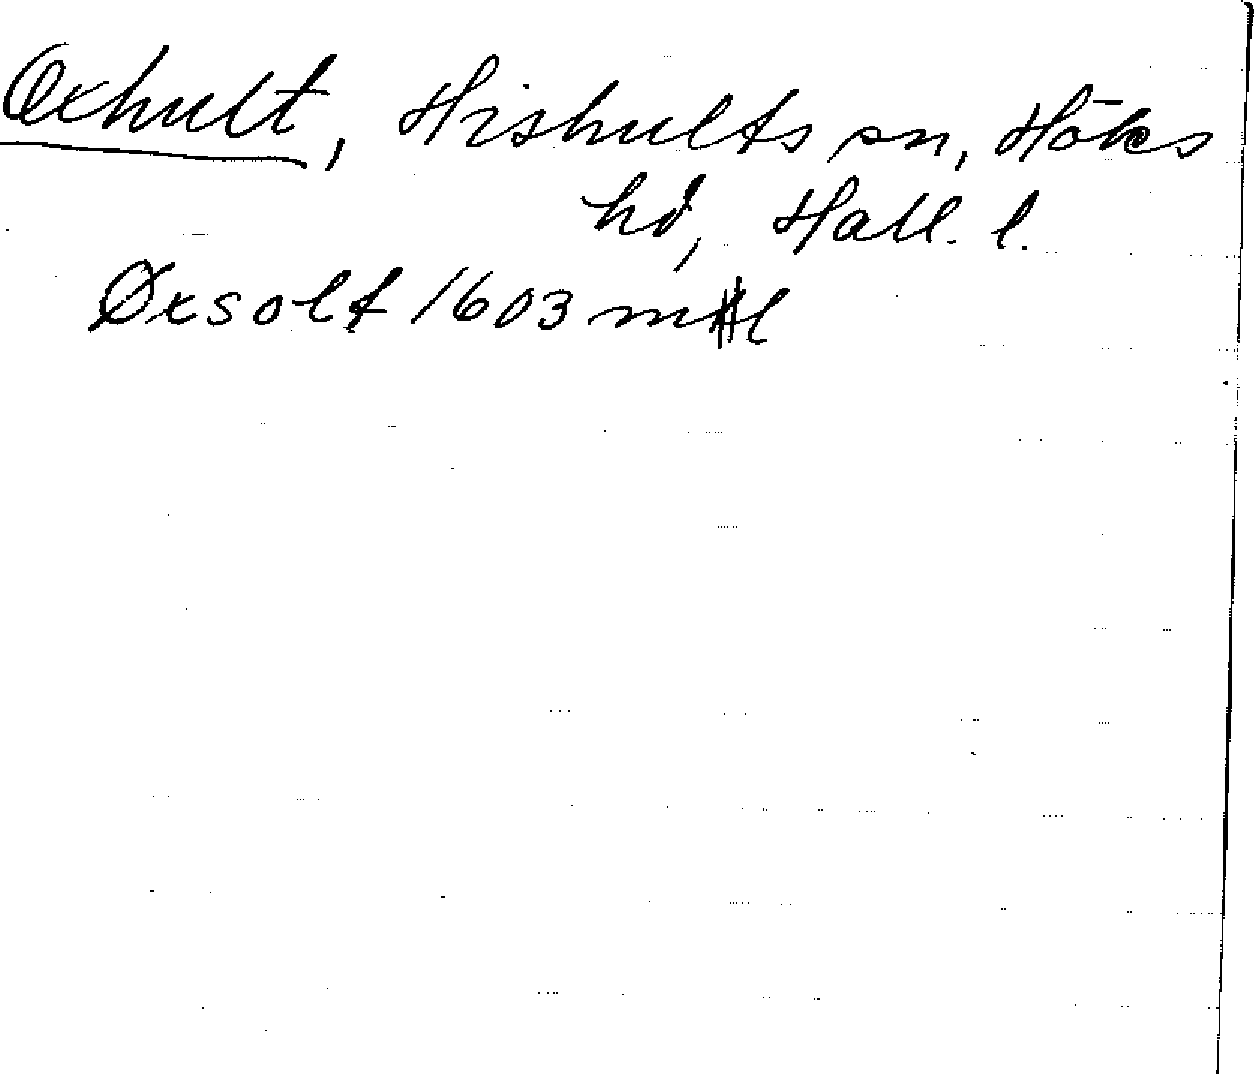 Oxhult, Hishults sn, Höks
hd, Hall. l.
Øxsolt 1603 mtl